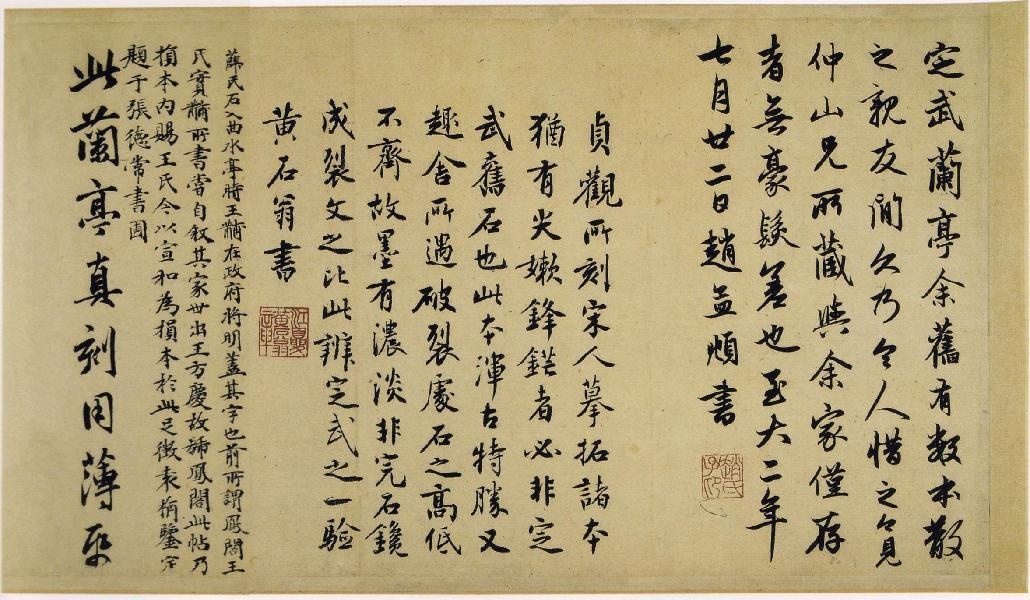 定武蘭亭余舊有數本散
之親友間久乃令人惜之今見
仲山兄所藏與余家僅存
者無豪髮差也至大二年
七月廿二日趙孟頫書
趙氏子印
貞觀所刻宋人摹拓諸本
猶有尖嫩鋒鋩者必非定
武舊石也此本渾古特勝又
趣舍所遇破裂處石之高低
不齊故墨有濃淡非完石鑱
成裂文之比此辨定武之一驗
黃石翁書
江夏黃石翁
薛氏石入曲水亭時王黼在政府將明蓋其字也前所謂鳳閣王
氏實黼所書嘗自敘其家世出王方慶故稱鳳閣此帖乃
損本內賜王氏今以宣和為損本於此足徵袁桷鑒定
題于張德常書圃
此蘭亭真刻用薄